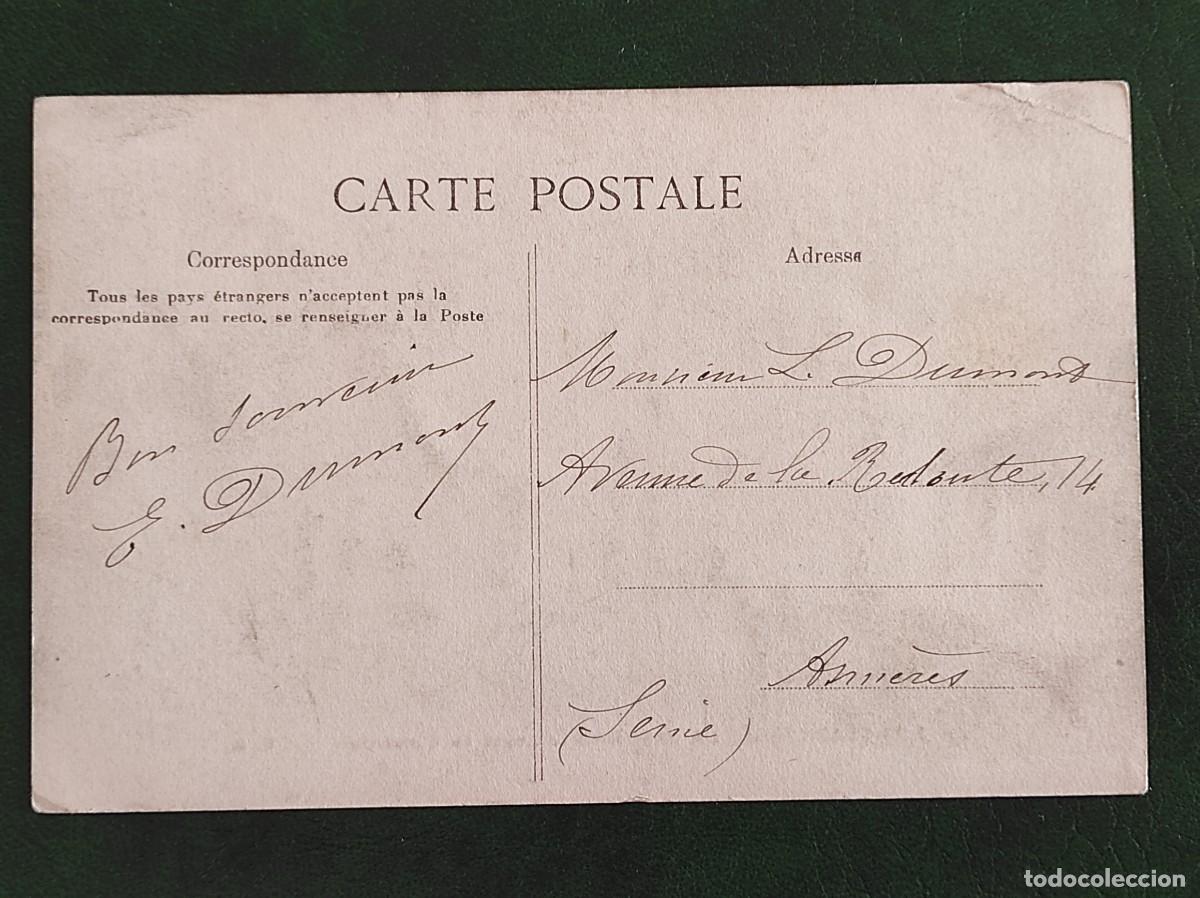 CARTE POSTALE
Correspondance
Tous les pays étrangers n'acceptent pas la
correspondance au recto, se renseigner à la Poste
Bon souvenir
E. Dumont
Adresse
Monsieur L. Dumont
Avenue de la Redoute, 14
Asnières
(Seine)
todocoleccion